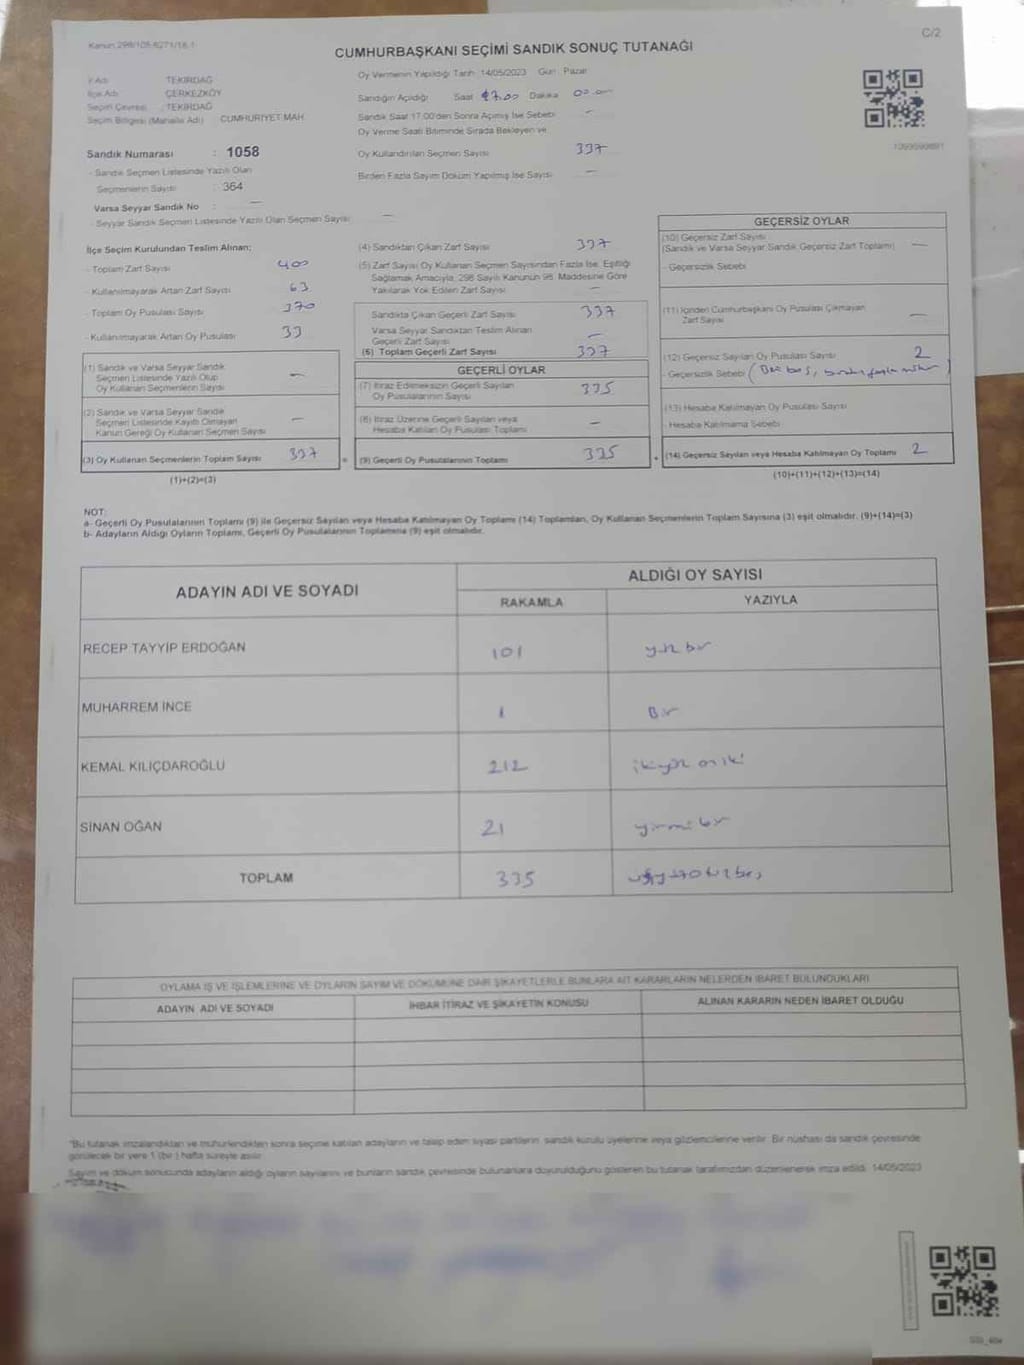 Kanun 298/105-6271/18.1
C/2
CUMHURBAŞKANI SEÇİMİ SANDIK SONUÇ TUTANAĞI
İl Adı : TEKİRDAĞ
İlçe Adı : ÇERKEZKÖY
Seçim Çevresi : TEKİRDAĞ
Seçim Bölgesi (Mahalle Adı) CUMHURİYET MAH.
Oy Vermenin Yapıldığı Tarih 14/05/2023 Gün : Pazar
Sandığın Açıldığı Saat 17.00 Dakika 00
Sandık Saat 17.00'den Sonra Açılmış İse Sebebi —
Oy Verme Saati Bitiminde Sırada Bekleyen ve
Oy Kullandırılan Seçmen Sayısı 337
Birden Fazla Sayım Döküm Yapılmış İse Sayısı —
Sandık Numarası : 1058
- Sandık Seçmen Listesinde Yazılı Olan
Seçmenlerin Sayısı : 364
Varsa Seyyar Sandık No : —
- Seyyar Sandık Seçmen Listesinde Yazılı Olan Seçmen Sayısı —
İlçe Seçim Kurulundan Teslim Alınan:
- Toplam Zarf Sayısı 400
- Kullanılmayarak Artan Zarf Sayısı 63
- Toplam Oy Pusulası Sayısı 370
- Kullanılmayarak Artan Oy Pusulası 33
(1) Sandık ve Varsa Seyyar Sandık
Seçmen Listesinde Yazılı Olup
Oy Kullanan Seçmenlerin Sayısı —
(2) Sandık ve Varsa Seyyar Sandık
Seçmen Listesinde Kayıtlı Olmayan
Kanun Gereği Oy Kullanan Seçmen Sayısı —
(3) Oy Kullanan Seçmenlerin Toplam Sayısı 337
(1)+(2)=(3)
(4) Sandıktan Çıkan Zarf Sayısı 337
(5) Zarf Sayısı Oy Kullanan Seçmen Sayısından Fazla İse, Eşitliği
Sağlamak Amacıyla, 298 Sayılı Kanunun 98. Maddesine Göre
Yakılarak Yok Edilen Zarf Sayısı —
Sandıkta Çıkan Geçerli Zarf Sayısı 337
Varsa Seyyar Sandıktan Teslim Alınan
Geçerli Zarf Sayısı —
(6) Toplam Geçerli Zarf Sayısı 337
GEÇERLİ OYLAR
(7) İtiraz Edilmeksizin Geçerli Sayılan
Oy Pusulalarının Sayısı 335
(8) İtiraz Üzerine Geçerli Sayılan veya
Hesaba Katılan Oy Pusulası Toplamı —
= (9) Geçerli Oy Pusulalarının Toplamı 335
GEÇERSİZ OYLAR
(10) Geçersiz Zarf Sayısı
(Sandık ve Varsa Seyyar Sandık Geçersiz Zarf Toplamı) —
- Geçersizlik Sebebi
(11) İçinden Cumhurbaşkanı Oy Pusulası Çıkmayan
Zarf Sayısı —
(12) Geçersiz Sayılan Oy Pusulası Sayısı 2
- Geçersizlik Sebebi
(13) Hesaba Katılmayan Oy Pusulası Sayısı
- Hesaba Katılmama Sebebi
+ (14) Geçersiz Sayılan veya Hesaba Katılmayan Oy Toplamı 2
(10)+(11)+(12)+(13)=(14)
NOT:
a- Geçerli Oy Pusulalarının Toplamı (9) ile Geçersiz Sayılan veya Hesaba Katılmayan Oy Toplamı (14) Toplamları, Oy Kullanan Seçmenlerin Toplam Sayısına (3) eşit olmalıdır. (9)+(14)=(3)
b- Adayların Aldığı Oyların Toplamı, Geçerli Oy Pusulalarının Toplamına (9) eşit olmalıdır.
ADAYIN ADI VE SOYADI
ALDIĞI OY SAYISI
RAKAMLA YAZIYLA
RECEP TAYYİP ERDOĞAN 101 yüz bir
MUHARREM İNCE 1 Bir
KEMAL KILIÇDAROĞLU 212 ikiyüz oniki
SİNAN OĞAN 21 yirmi bir
TOPLAM 335 üçyüzotuzbeş
OYLAMA İŞ VE İŞLEMLERİNE VE OYLARIN SAYIM VE DÖKÜMÜNE DAİR ŞİKAYETLERLE BUNLARA AİT KARARLARIN NELERDEN İBARET BULUNDUKLARI
ADAYIN ADI VE SOYADI İHBAR İTİRAZ VE ŞİKAYETİN KONUSU ALINAN KARARIN NEDEN İBARET OLDUĞU
"Bu tutanak imzalandıktan ve mühürlendikten sonra seçime katılan adayların ve talep eden siyasi partilerin sandık kurulu üyelerine veya gözlemcilerine verilir. Bir nüshası da sandık çevresinde
görülecek bir yere 1 (bir) hafta süreyle asılır.
Sayım ve döküm sonucunda adayların aldığı oyların sayılarını ve bunların sandık çevresinde bulunanlara duyurulduğunu gösteren bu tutanak tarafımızdan düzenlenerek imza edildi. 14/05/2023